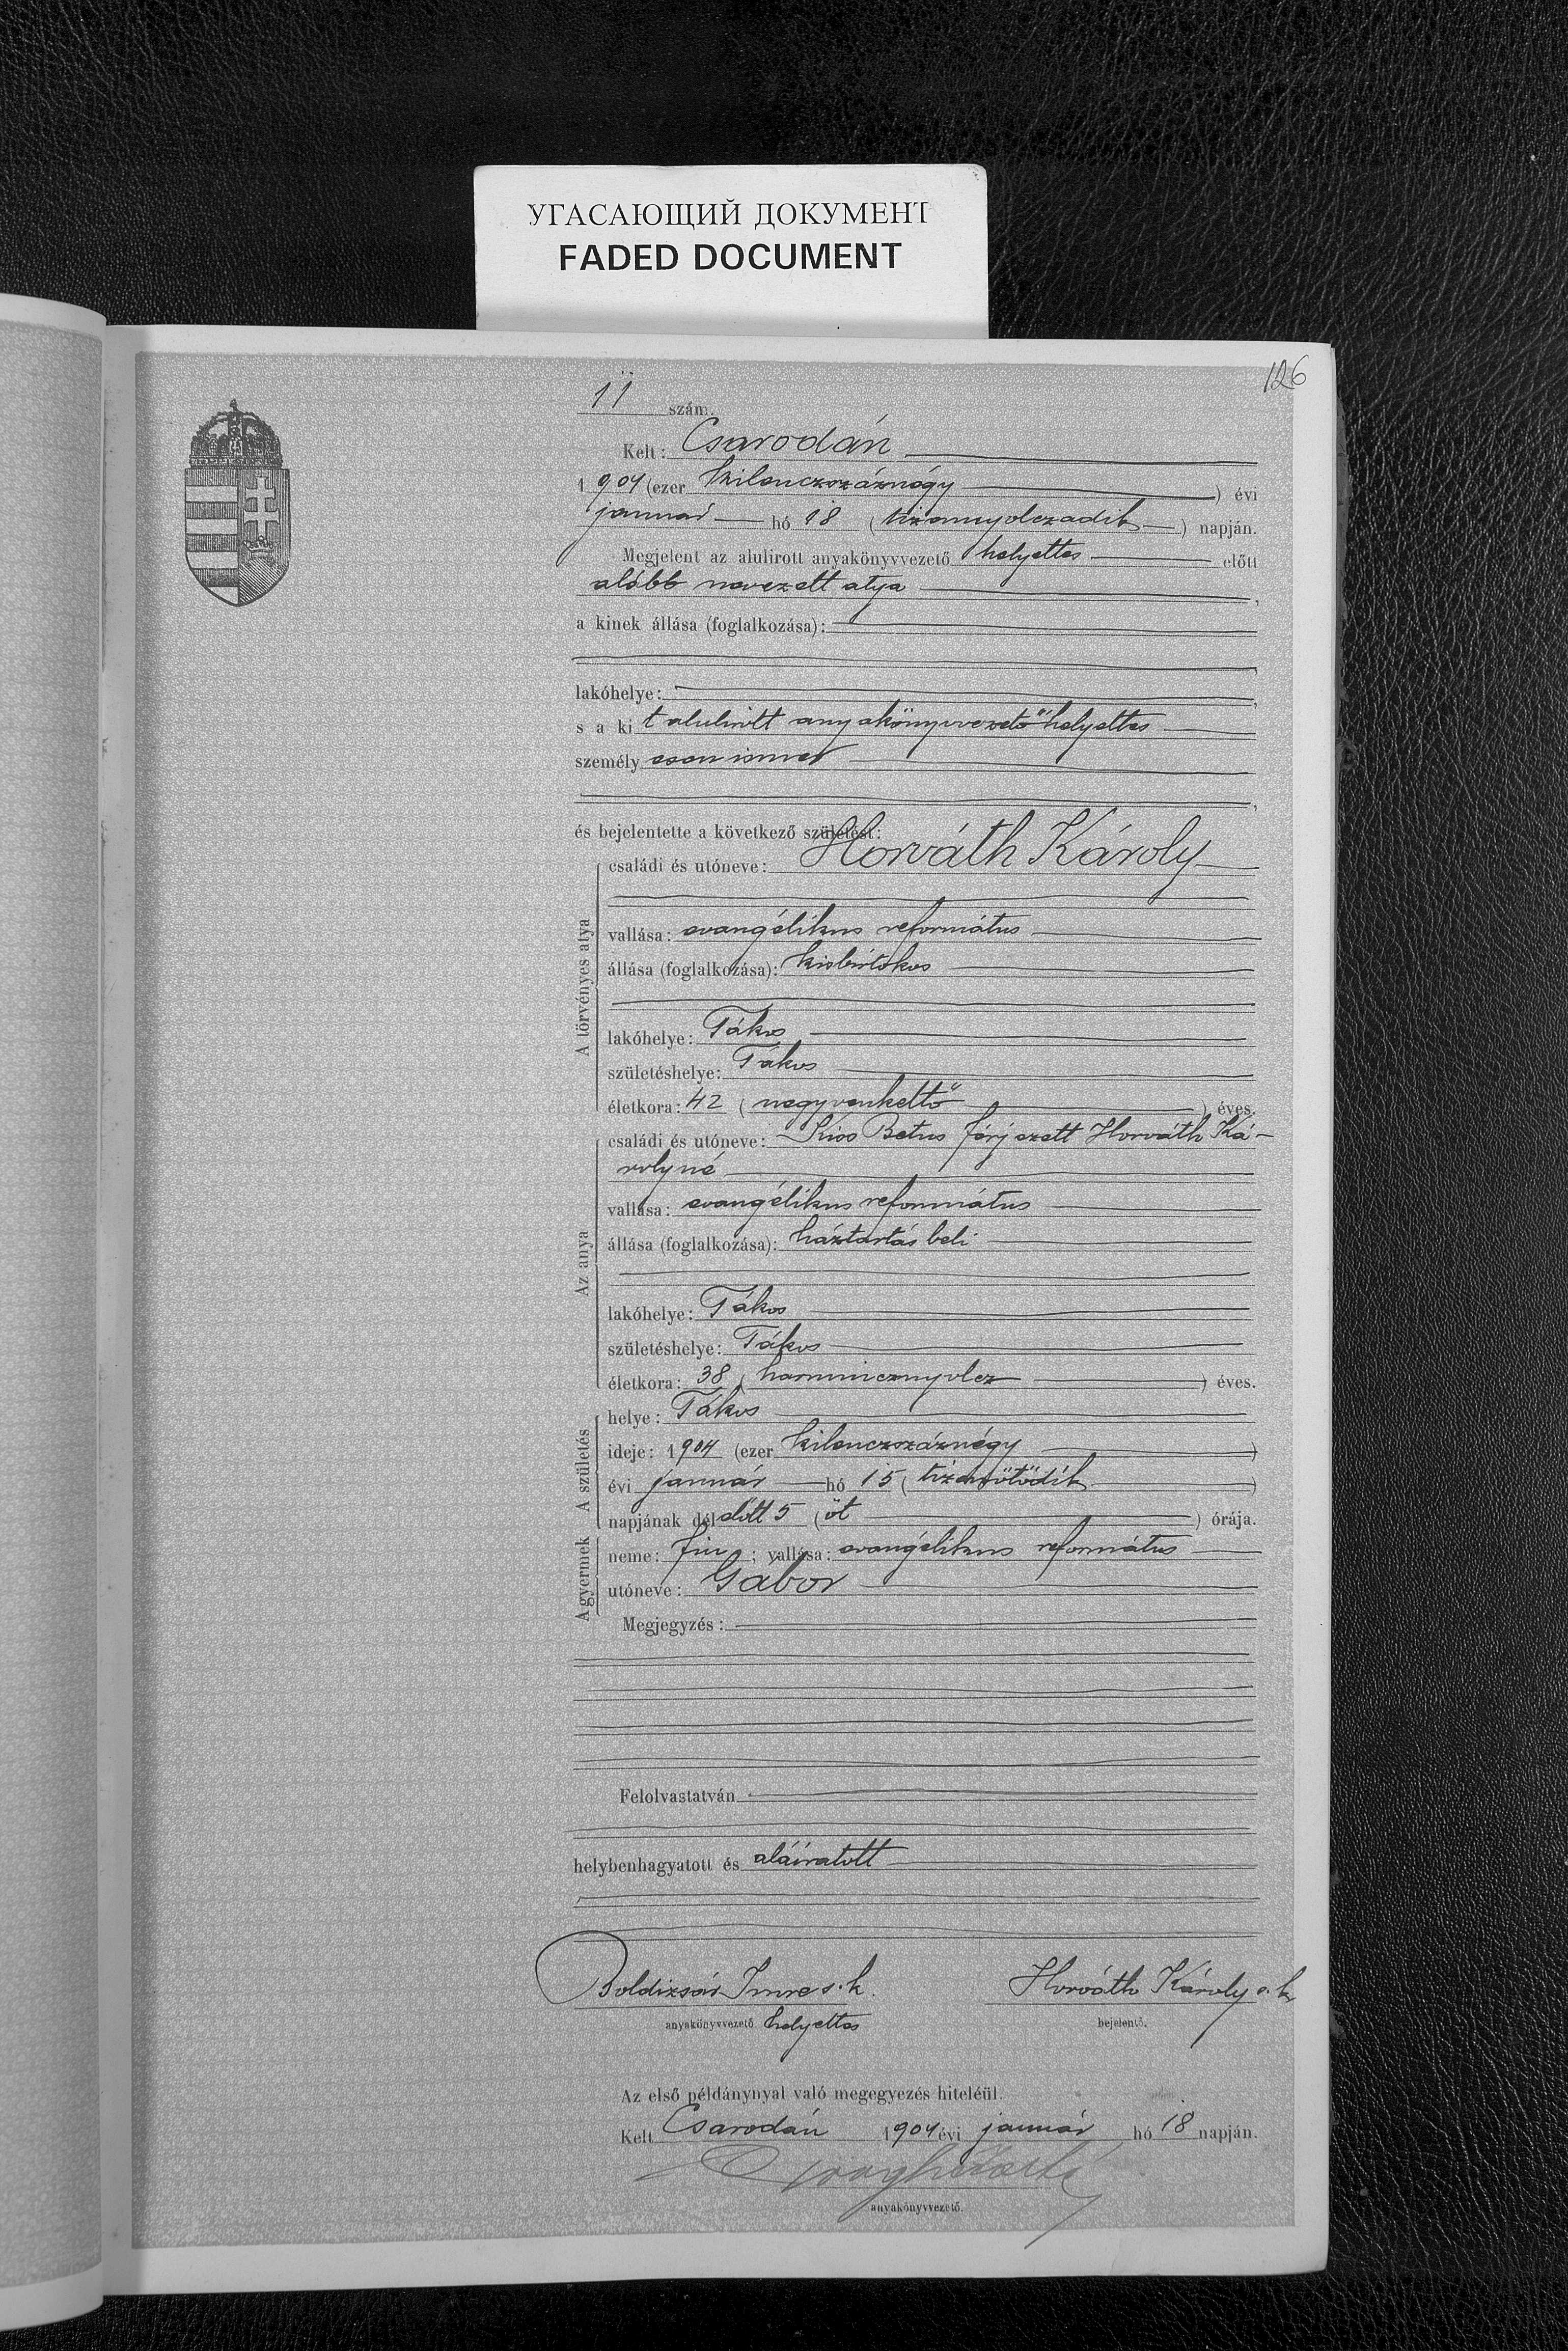 УГАСАЮЩИЙ ДОКУМЕНТ
FADED DOCUMENT
126
11 szám.
Kelt: Csarodán
1904 (ezer kilenczszáznégy) évi
január hó 18 (tizennyolczadik) napján.
Megjelent az alulirott anyakönyvvezető helyettes előtt
alább nevezett atya,
a kinek állása (foglalkozása):
lakóhelye:
s a kit alulirott anyakönyvvezető helyettes
személyesen ismer
és bejelentette a következő születést:
A törvényes atya
családi és utóneve: Horváth Károly
vallása: evangélikus református
állása (foglalkozása): kisbirtokos
lakóhelye: Tákos
születéshelye: Tákos
életkora: 42 (negyvenkettő) éves.
Az anya
családi és utóneve: Kiss Betus férjezett Horváth Ká-
rolyné
vallása: evangélikus református
állása (foglalkozása): háztartás beli
lakóhelye: Tákos
születéshelye: Tákos
életkora: 38 (harmincznyolcz) éves.
A születés
helye: Tákos
ideje: 1904 (ezer kilenczszáznégy)
évi január hó 15 (tizenötödik)
napjának délelőtt 5 (öt) órája.
A gyermek
neme: fiu; vallása: evangélikus református
utóneve: Gábor
Megjegyzés:
Felolvastatván
helybenhagyatott és aláiratott
Boldizsár Imre s. k. Horváth Károly s. k
anyakönyvvezető helyettes bejelentő.
Az első példánynyal való megegyezés hiteléül.
Kelt Csarodán 1904 évi január hó 18 napján.
anyakönyvvezető.